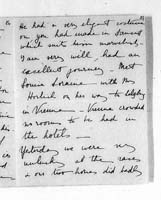 He had a very elegant costume
on you had made in
which suits him marvelously.
I am very well, had an
excellent journey – Met
Louise Loraine – with Mrs
on her way to
in Vienna – Vienna crowded
no rooms to be had in
the hotel –
Yesterday we were very
unlucky at the races
– our two horses did badly